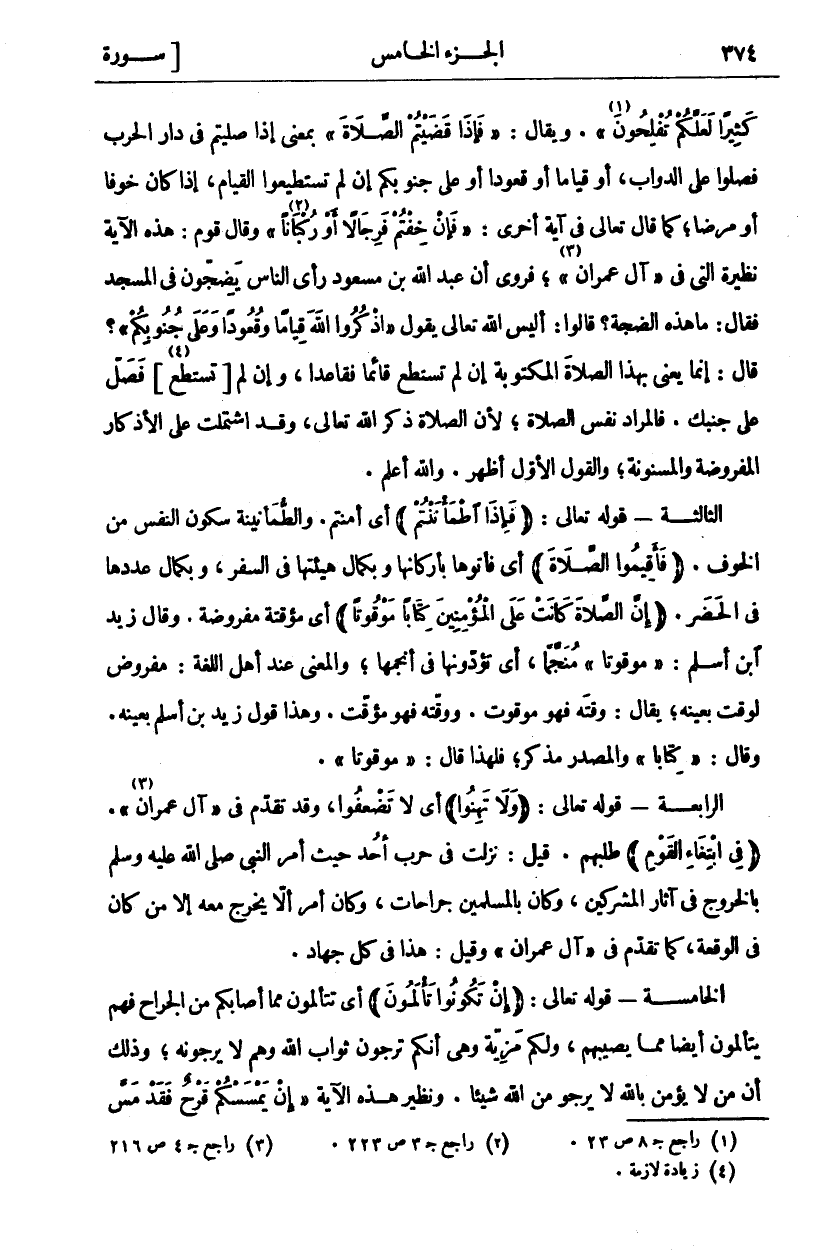 ٣٧٤ الجزء الخامس [ سورة
كَثِيرًا لَعَلَّكُمْ تُفْلِحُونَ (١) » . ويقال : « فَإِذَا قَضَيْتُمُ الصَّلَاةَ » بمعنى إذا صليتم فى دار الحرب
فصلوا على الدواب، أو قياما أو قعودا أو على جنوبكم إن لم تستطيعوا القيام، إذا كان خوفا
أو مرضا؛ كما قال تعالى فى آية أخرى : « فَإِنْ خِفْتُمْ فَرِجَالًا أَوْ رُكْبَانًا (٢) » وقال قوم : هذه الآية
نظيرة التى فى « آل عمران (٣) » ؛ فروى أن عبد الله بن مسعود رأى الناس يَضِجّون فى المسجد
فقال: ما هذه الضجة؟ قالوا: أليس الله تعالى يقول «اذْكُرُوا اللهَ قِيَامًا وَقُعُودًا وَعَلَى جُنُوبِكُمْ»؟
قال : إنما يعنى بهذا الصلاة المكتوبة إن لم تستطع قائما فقاعدا ، وإن لم [ تستطع (٤) ] فَصَلّ
على جنبك . فالمراد نفس الصلاة ؛ لأن الصلاة ذكر الله تعالى، وقد اشتملت على الأذكار
المفروضة والمسنونة؛ والقول الأوّل أظهر . والله أعلم .
الثالثة – قوله تعالى : ﴿ فَإِذَا ٱطْمَأْنَنْتُمْ ﴾ أى أمنتم. والطُّمَأنينة سكون النفس من
الخوف . ﴿ فَأَقِيمُوا الصَّلَاةَ ﴾ أى فأتوها بأركانها وبكمال هيئتها فى السفر ، وبكمال عددها
فى الحَضَر . ﴿ إِنَّ الصَّلَاةَ كَانَتْ عَلَى الْمُؤْمِنِينَ كِتَابًا مَوْقُوتًا ﴾ أى مؤقتة مفروضة . وقال زيد
آبن أسلم : « موقوتا » مُنَجَّمًا ، أى تؤدّونها فى أنجمها ؛ والمعنى عند أهل اللغة : مفروض
لوقت بعينه؛ يقال : وقتَه فهو موقوت . ووقّته فهو مؤقّت . وهذا قول زيد بن أسلم بعينه.
وقال : « كِتابا » والمصدر مذكر؛ فلهذا قال : « موقوتا » .
الرابعة – قوله تعالى : ﴿وَلَا تَهِنُوا﴾ أى لا تَضْعُفُوا، وقد تقدّم فى «آل عمران (٣)» .
﴿ فِى ابْتِغَاءِ الْقَوْمِ ﴾ طلبهم . قيل : نزلت فى حرب أُحُد حيث أمر النبى صلى الله عليه وسلم
بالخروج فى آثار المشركين ، وكان بالمسلمين جراحات ، وكان أمر ألّا يخرج معه إلا من كان
فى الوقعة، كما تقدّم فى «آل عمران» وقيل : هذا فى كل جهاد .
الخامسة – قوله تعالى : ﴿ إِنْ تَكُونُوا تَأْلَمُونَ ﴾ أى تتألمون مما أصابكم من الجراح فهم
يتألمون أيضا مما يصيبهم ، ولكم مَزِيّة وهى أنكم ترجون ثواب الله وهم لا يرجونه ؛ وذلك
أن من لا يؤمن بالله لا يرجو من الله شيئا . ونظير هذه الآية « إِنْ يَمْسَسْكُمْ قَرْحٌ فَقَدْ مَسَّ
(١) راجع جـ ٨ ص ٢٣ . (٢) راجع جـ ٣ ص ٢٢٣ . (٣) راجع جـ ٤ ص ٢١٦
(٤) زيادة لازمة .